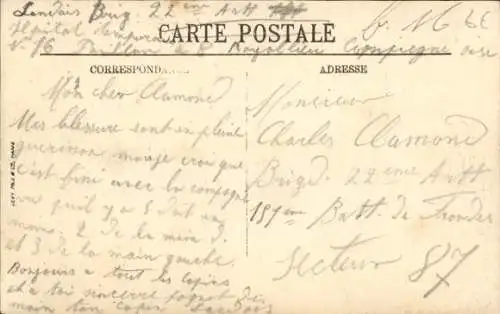 Landais Brig. 22ème Artt
Hôpital Temporaire
N° 16 Pavillon 8 Royallieu Compiègne Oise
CARTE POSTALE
CORRESPONDANCE
ADRESSE
Mon cher Clamond
Mes blessure sont en pleine
guerison mais je crois que
c'est fini avec la compagne
vu qu'il y a 5 doit en
moin. 2 de la main d.
et 3 de la main gauche.
Bonjours a tout les copins
et a toi sincère
main ton copin Landais
Monsieur
Charles Clamond
Brigd. 22ème Artt
151ème Batt. de
Secteur 87